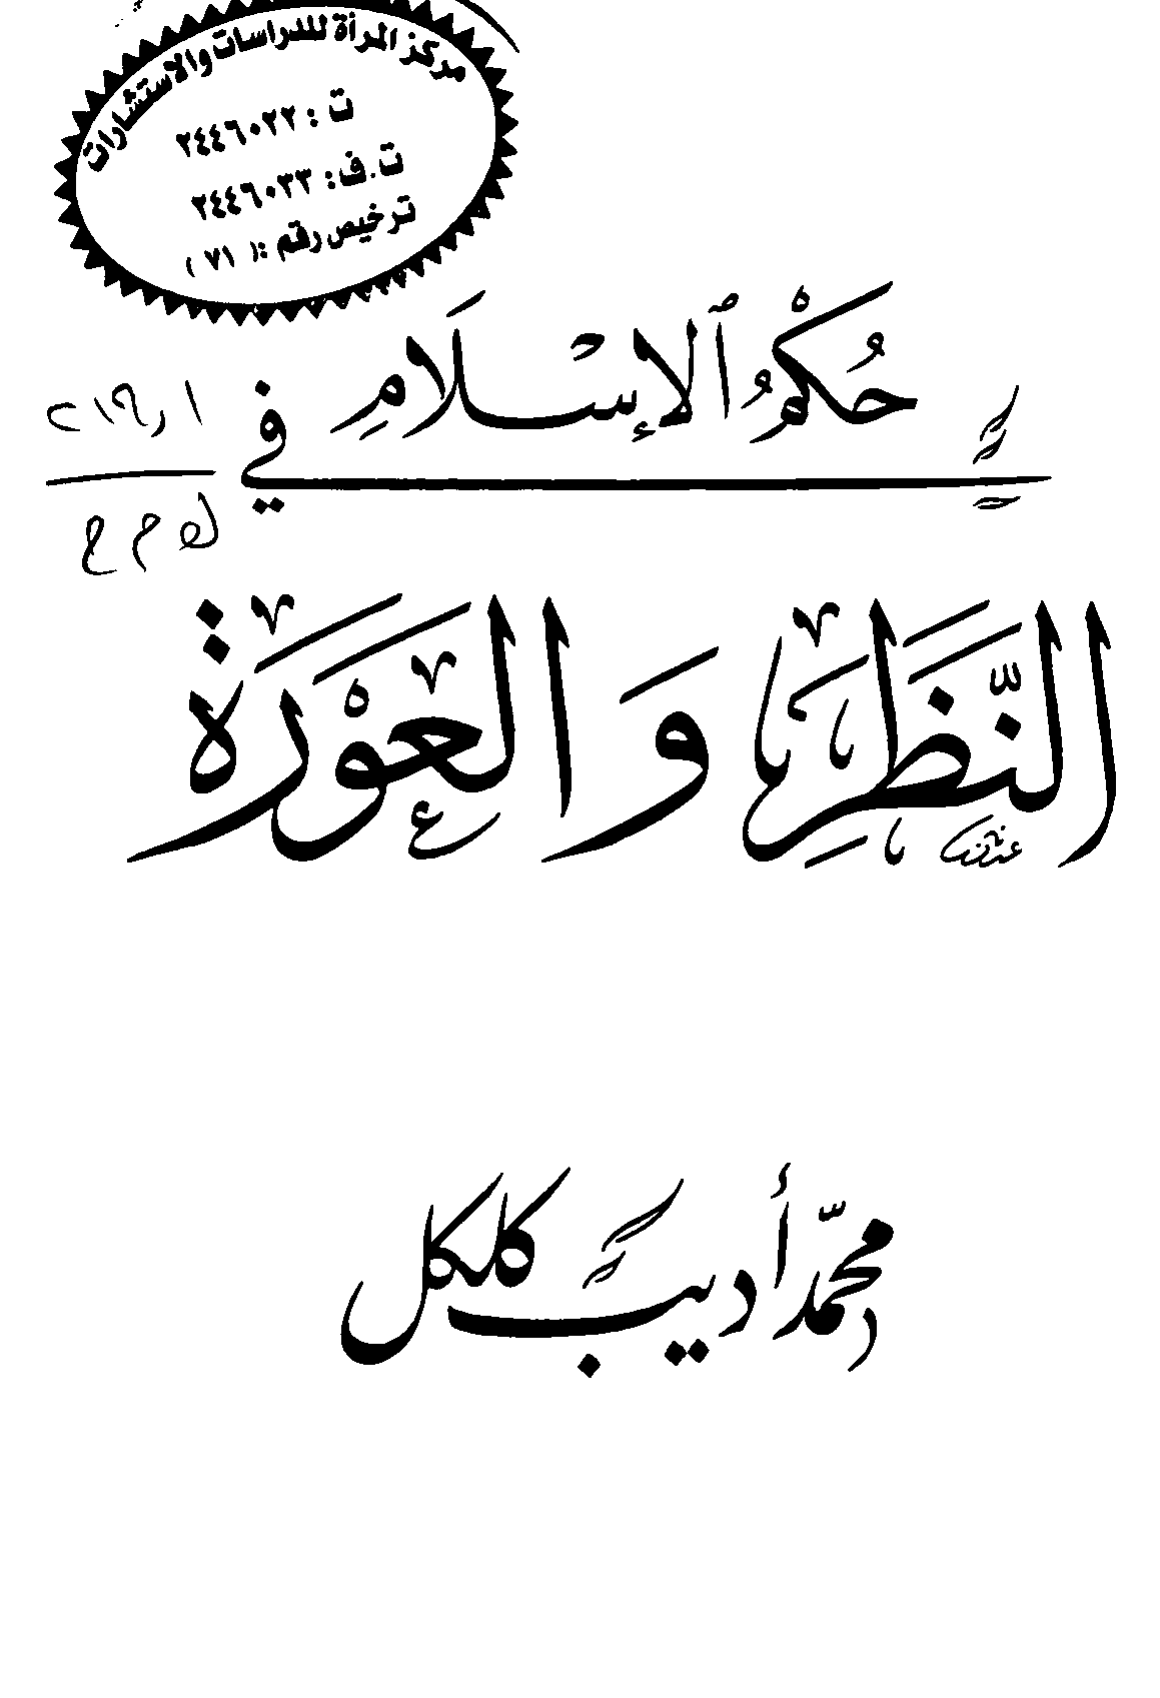 مركز المرأة للدراسات والاستشارات
ت : ٢٤٤٦٠٢٢
ت.ف: ٢٤٤٦٠٣٣
ترخيص رقم :( ٧١ )
حُكْمُ ٱلإِسْلَامِ في
النَّظَرِ وَالعَوْرَة
محمّد أديب كلكل